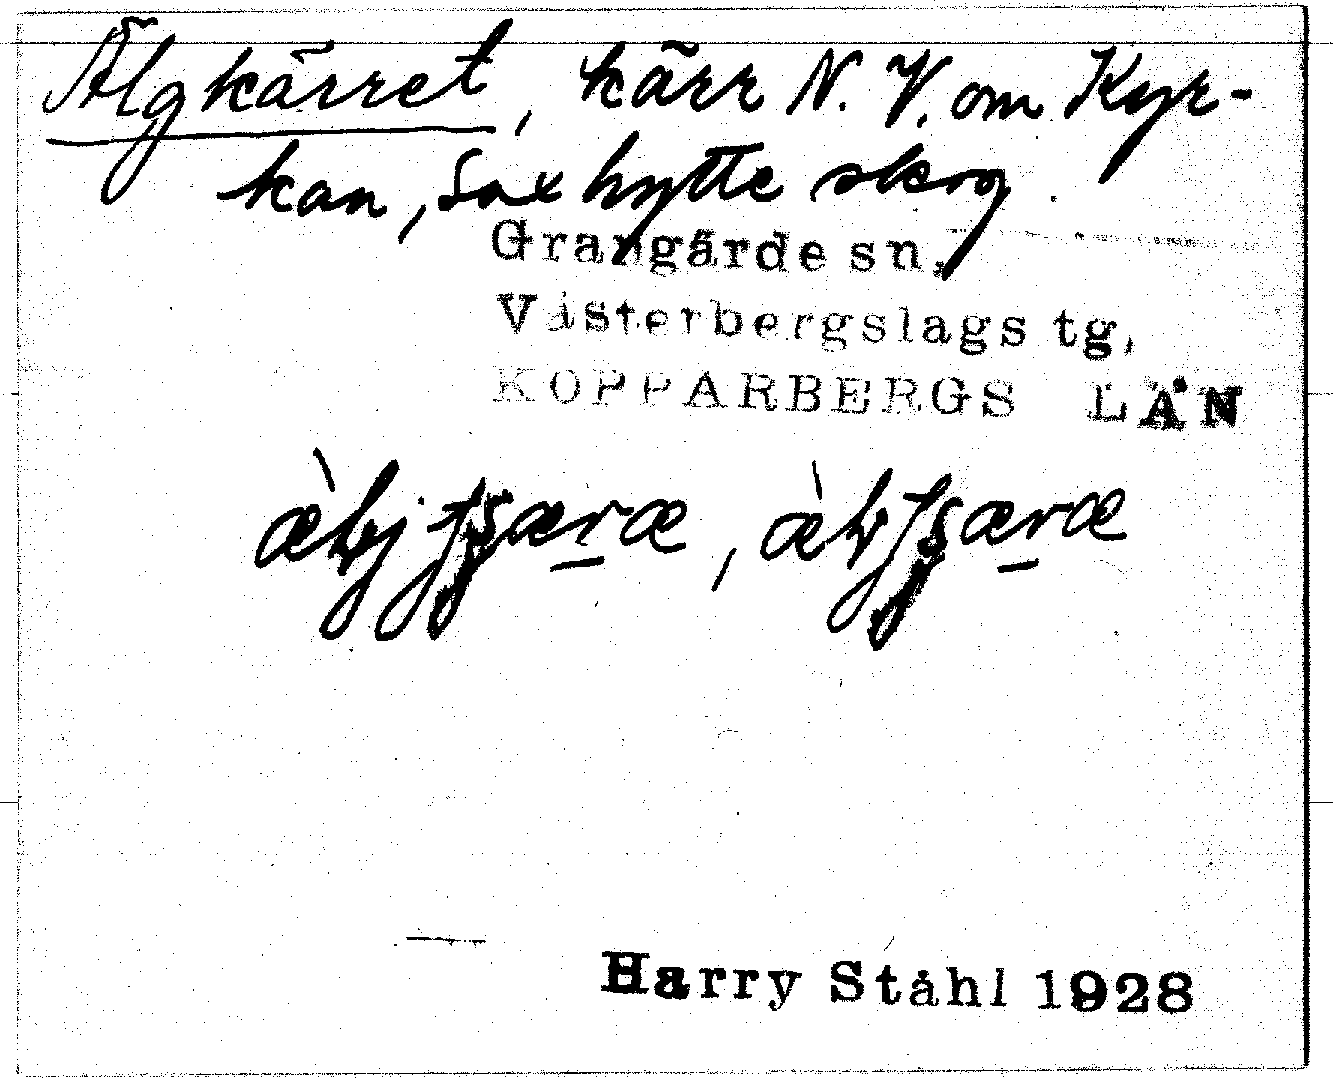 Älgkärret, kärr N. V. om Kyr-
kan, Saxhytte skog.
Grangärde sn,
Västerbergslags tg,
KOPPARBERGS LÄN
Harry Ståhl 1928